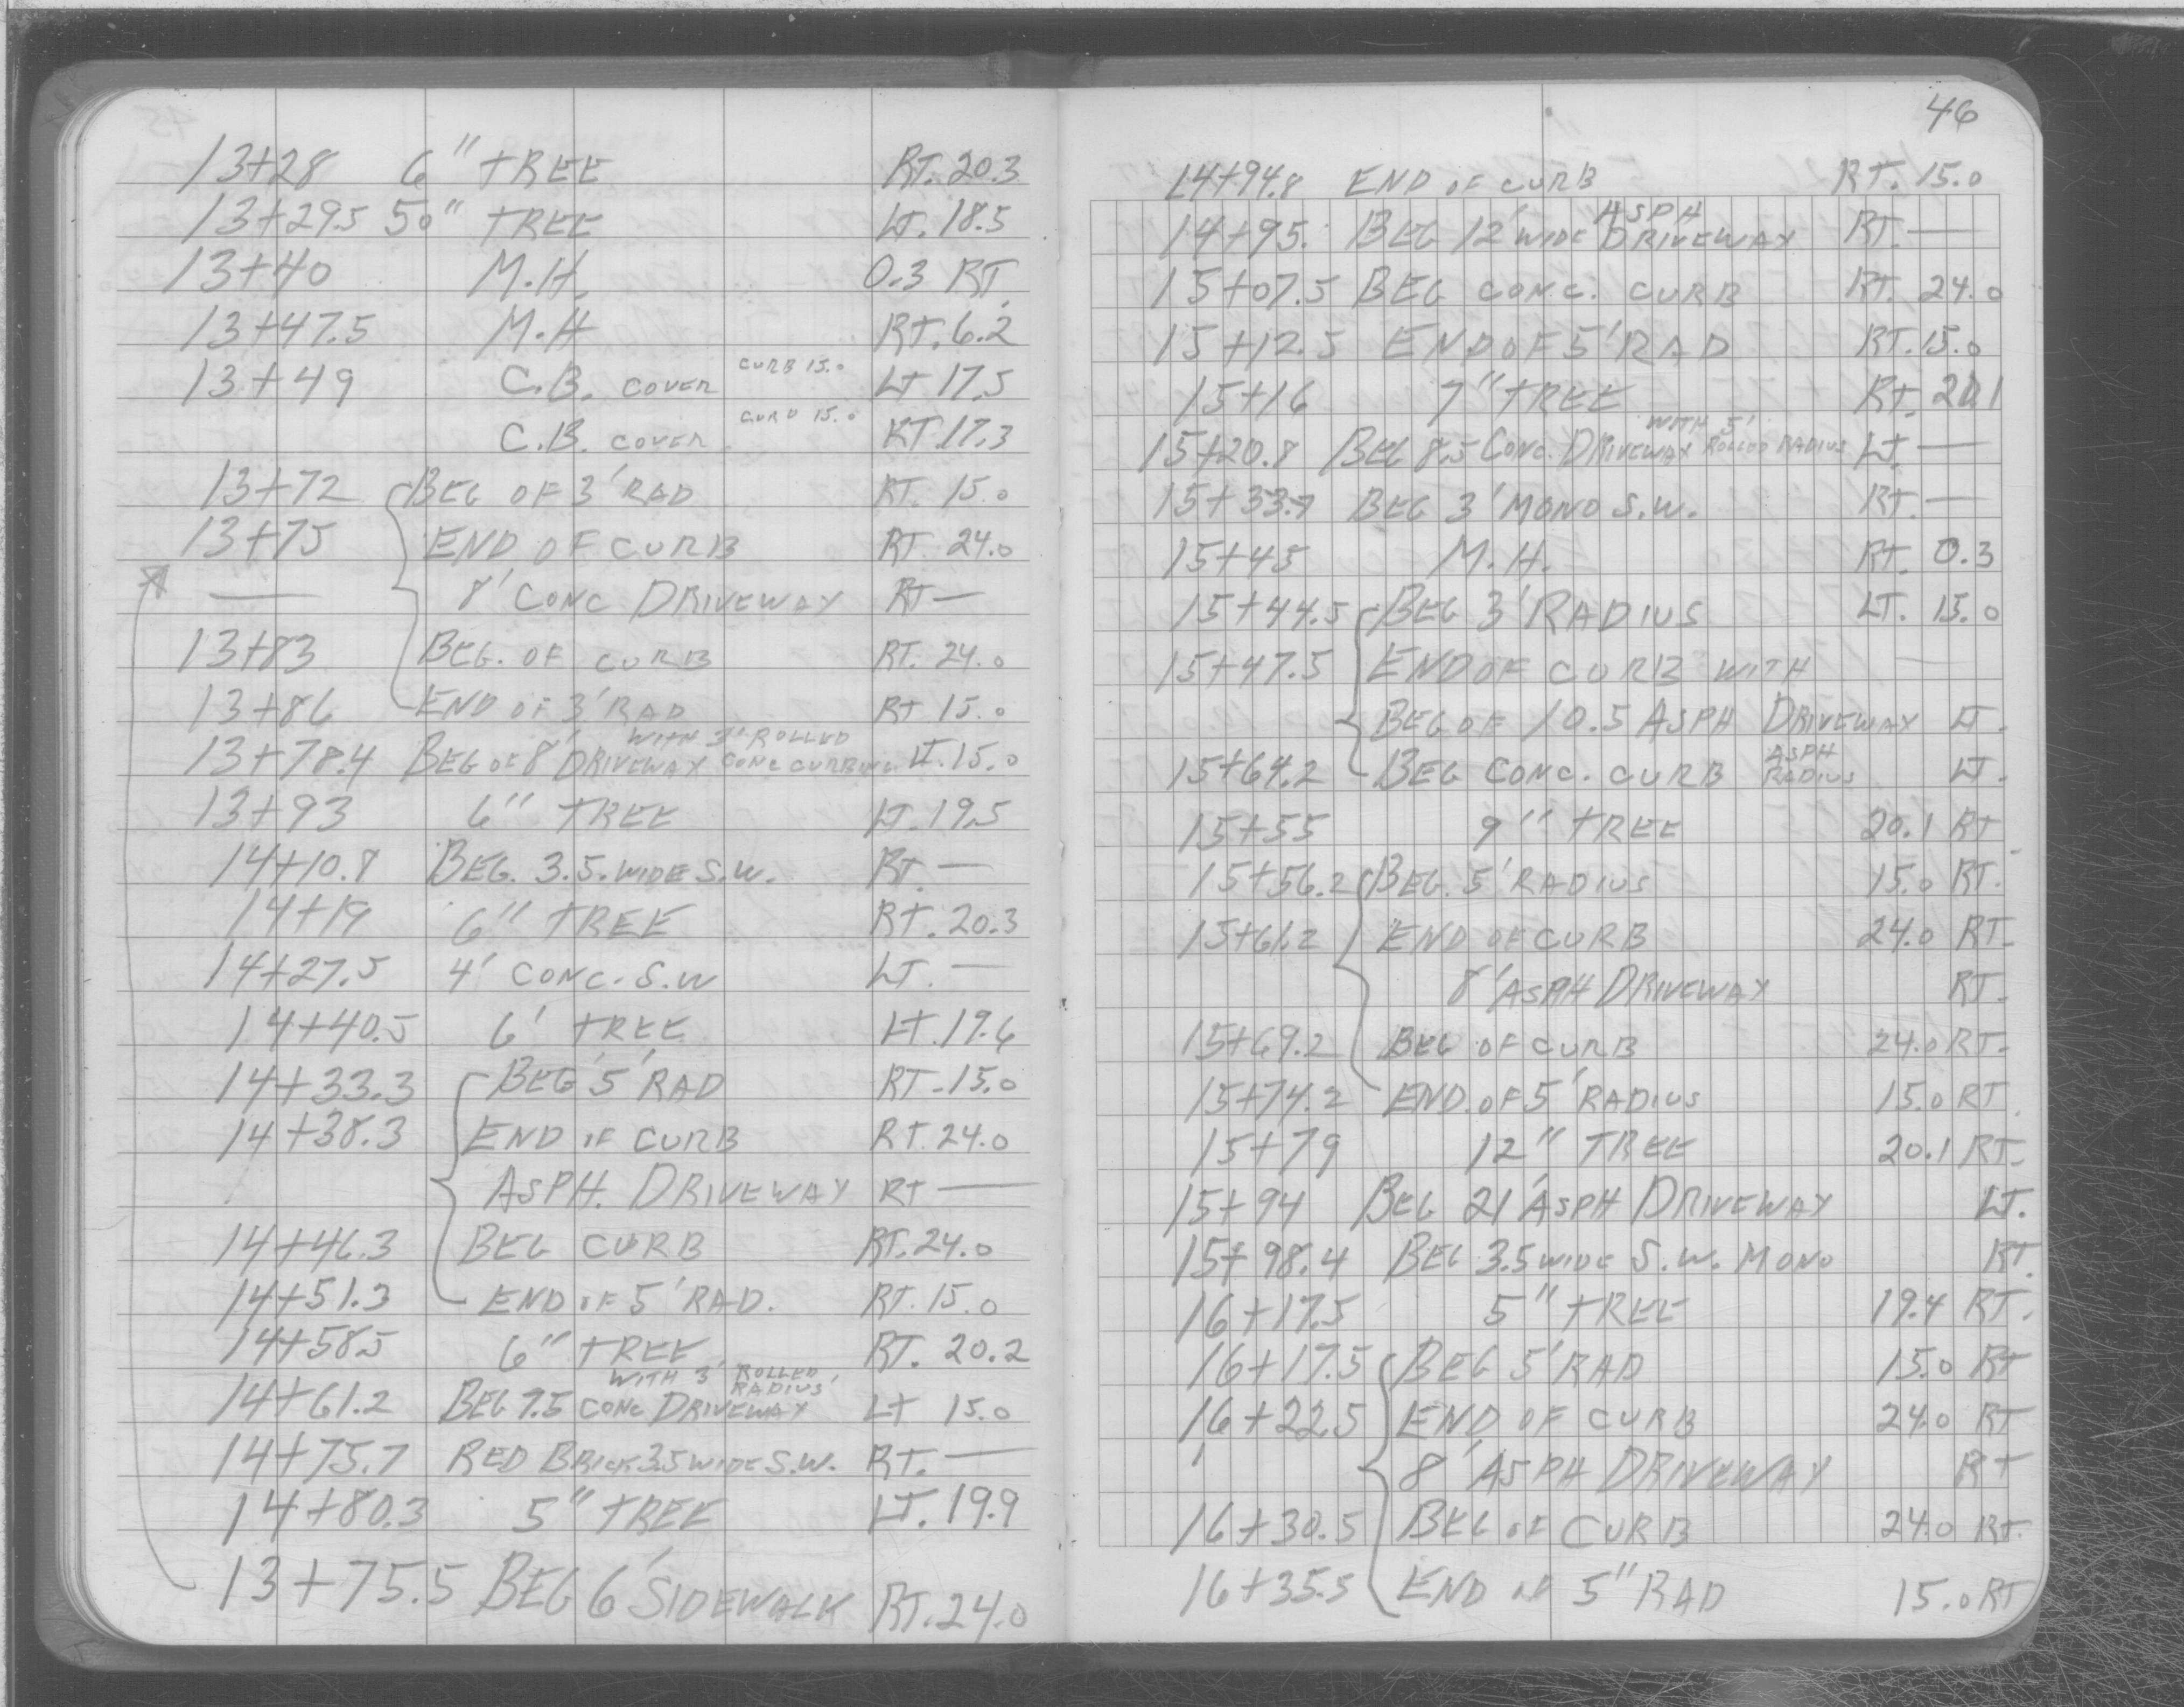 13+28 6" TREE RT. 20.3
13+29.5 50" TREE LT. 18.5
13+40 M.H. 0.3 RT.
13+47.5 M.H RT. 6.2
13+49 C.B. COVER CURB 15.0 LT 17.5
C.B. COVER CURB 15.0 RT. 17.3
13+72 BEG OF 3' RAD RT. 15.0
13+75 END OF CURB RT. 24.0
— 8' CONC DRIVEWAY RT —
13+83 BEG. OF CURB RT. 24.0
13+86 END OF 3' RAD RT 15.0
WITH 3' ROLLED
13+78.4 BEG OF 8' DRIVEWAY CONC CURBING LT. 15.0
13+93 6" TREE LT. 19.5
14+10.8 BEG. 3.5. WIDE S.W. RT. —
14+19 6" TREE RT. 20.3
14+27.5 4' CONC. S.W LT. —
14+40.5 6' TREE LT. 19.6
14+33.3 BEG 5' RAD RT. 15.0
14+38.3 END OF CURB RT. 24.0
ASPH. DRIVEWAY RT —
14+46.3 BEG CURB RT. 24.0
14+51.3 END OF 5' RAD. RT. 15.0
14+58.5 6" TREE RT. 20.2
WITH 3' ROLLED RADIUS
14+61.2 BEG 7.5 CONC DRIVEWAY LT 15.0
14+75.7 RED BRICK 3.5 WIDE S.W. RT. —
14+80.3 5" TREE LT. 19.9
13+75.5 BEG 6' SIDEWALK RT. 24.0
46
14+94.8 END OF CURB RT. 15.0
ASPH
14+95. BEG 12' WIDE DRIVEWAY RT. —
15+07.5 BEG CONC. CURB RT. 24.0
15+12.5 END OF 5' RAD RT. 15.0
15+16 7" TREE RT. 20.1
WITH 5'
15+20.8 BEG 8.5 CONC. DRIVEWAY ROLLED RADIUS LT. —
15+33.7 BEG 3' MONO S.W. RT. —
15+45 M.H. RT. 0.3
15+44.5 BEG 3' RADIUS LT. 15.0
15+47.5 END OF CURB WITH
BEG OF 10.5 ASPH DRIVEWAY LT.
15+64.2 BEG CONC. CURB ASPH RADIUS LT.
15+55 9" TREE 20.1 RT
15+56.2 BEG. 5' RADIUS 15.0 RT.
15+61.2 END OF CURB 24.0 RT.
8' ASPH DRIVEWAY RT.
15+69.2 BEG OF CURB 24.0 RT.
15+74.2 END OF 5' RADIUS 15.0 RT.
15+79 12" TREE 20.1 RT.
15+94 BEG 21' ASPH DRIVEWAY LT.
15+98.4 BEG 3.5 WIDE S.W. MONO RT.
16+17.5 5" TREE 19.4 RT.
16+17.5 BEG 5' RAD 15.0 RT
16+22.5 END OF CURB 24.0 RT
8' ASPH DRIVEWAY RT
16+30.5 BEG OF CURB 24.0 RT.
16+35.5 END OF 5" RAD 15.0 RT